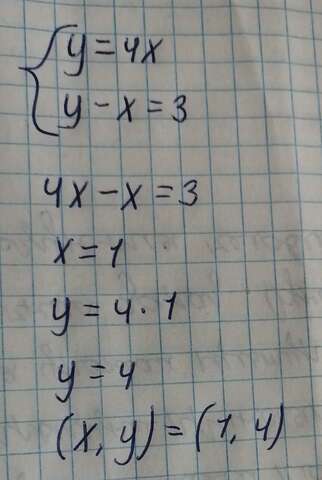 y = 4x
y - x = 3
4x - x = 3
x = 1
y = 4 · 1
y = 4
(x, y) = (1, 4)